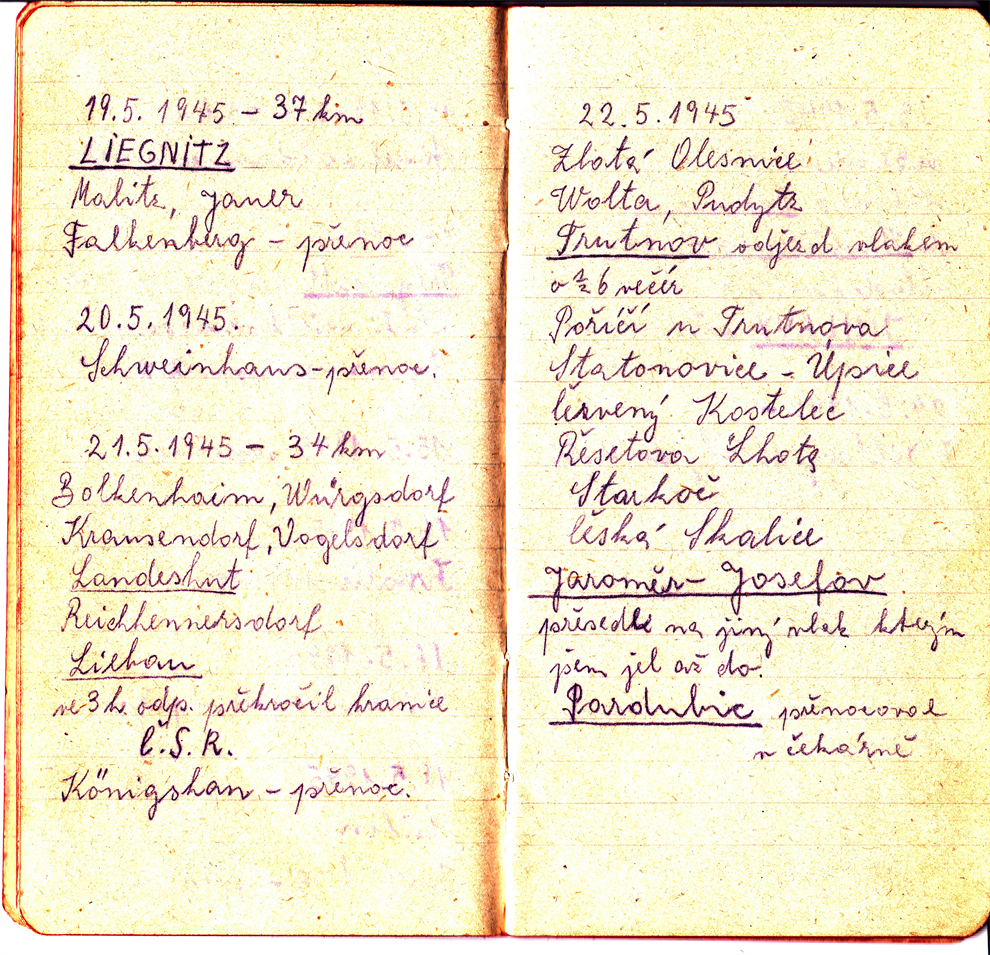 19.5. 1945 – 37 km
LIEGNITZ
Malitz, Janer
Falkenberg – přenoc
20.5. 1945.
Schweinhaus – přenoc.
21.5. 1945 – 34 km
Bolkenhaim, Würgsdorf
Krausendorf, Vogelsdorf
Landeshut
Reichhennersdorf
Liebau
ve 3 h. odp. překročil hranice
Č.S.R.
Königshan – přenoc.
22.5. 1945
Zlatá Olesnice
Wolta, Pudytz
Trutnov odjezd vlakem
o ½ 6 večér
Poříčí u Trutnova
Statonovice – Úpice
Červený Kostelec
Řešetova Lhota
Starkoč
Česká Skalice
Jaroměr – Josefov
přesedl na jiný vlak kterým
jsem jel až do.
Pardubic přenocoval
v čekárně